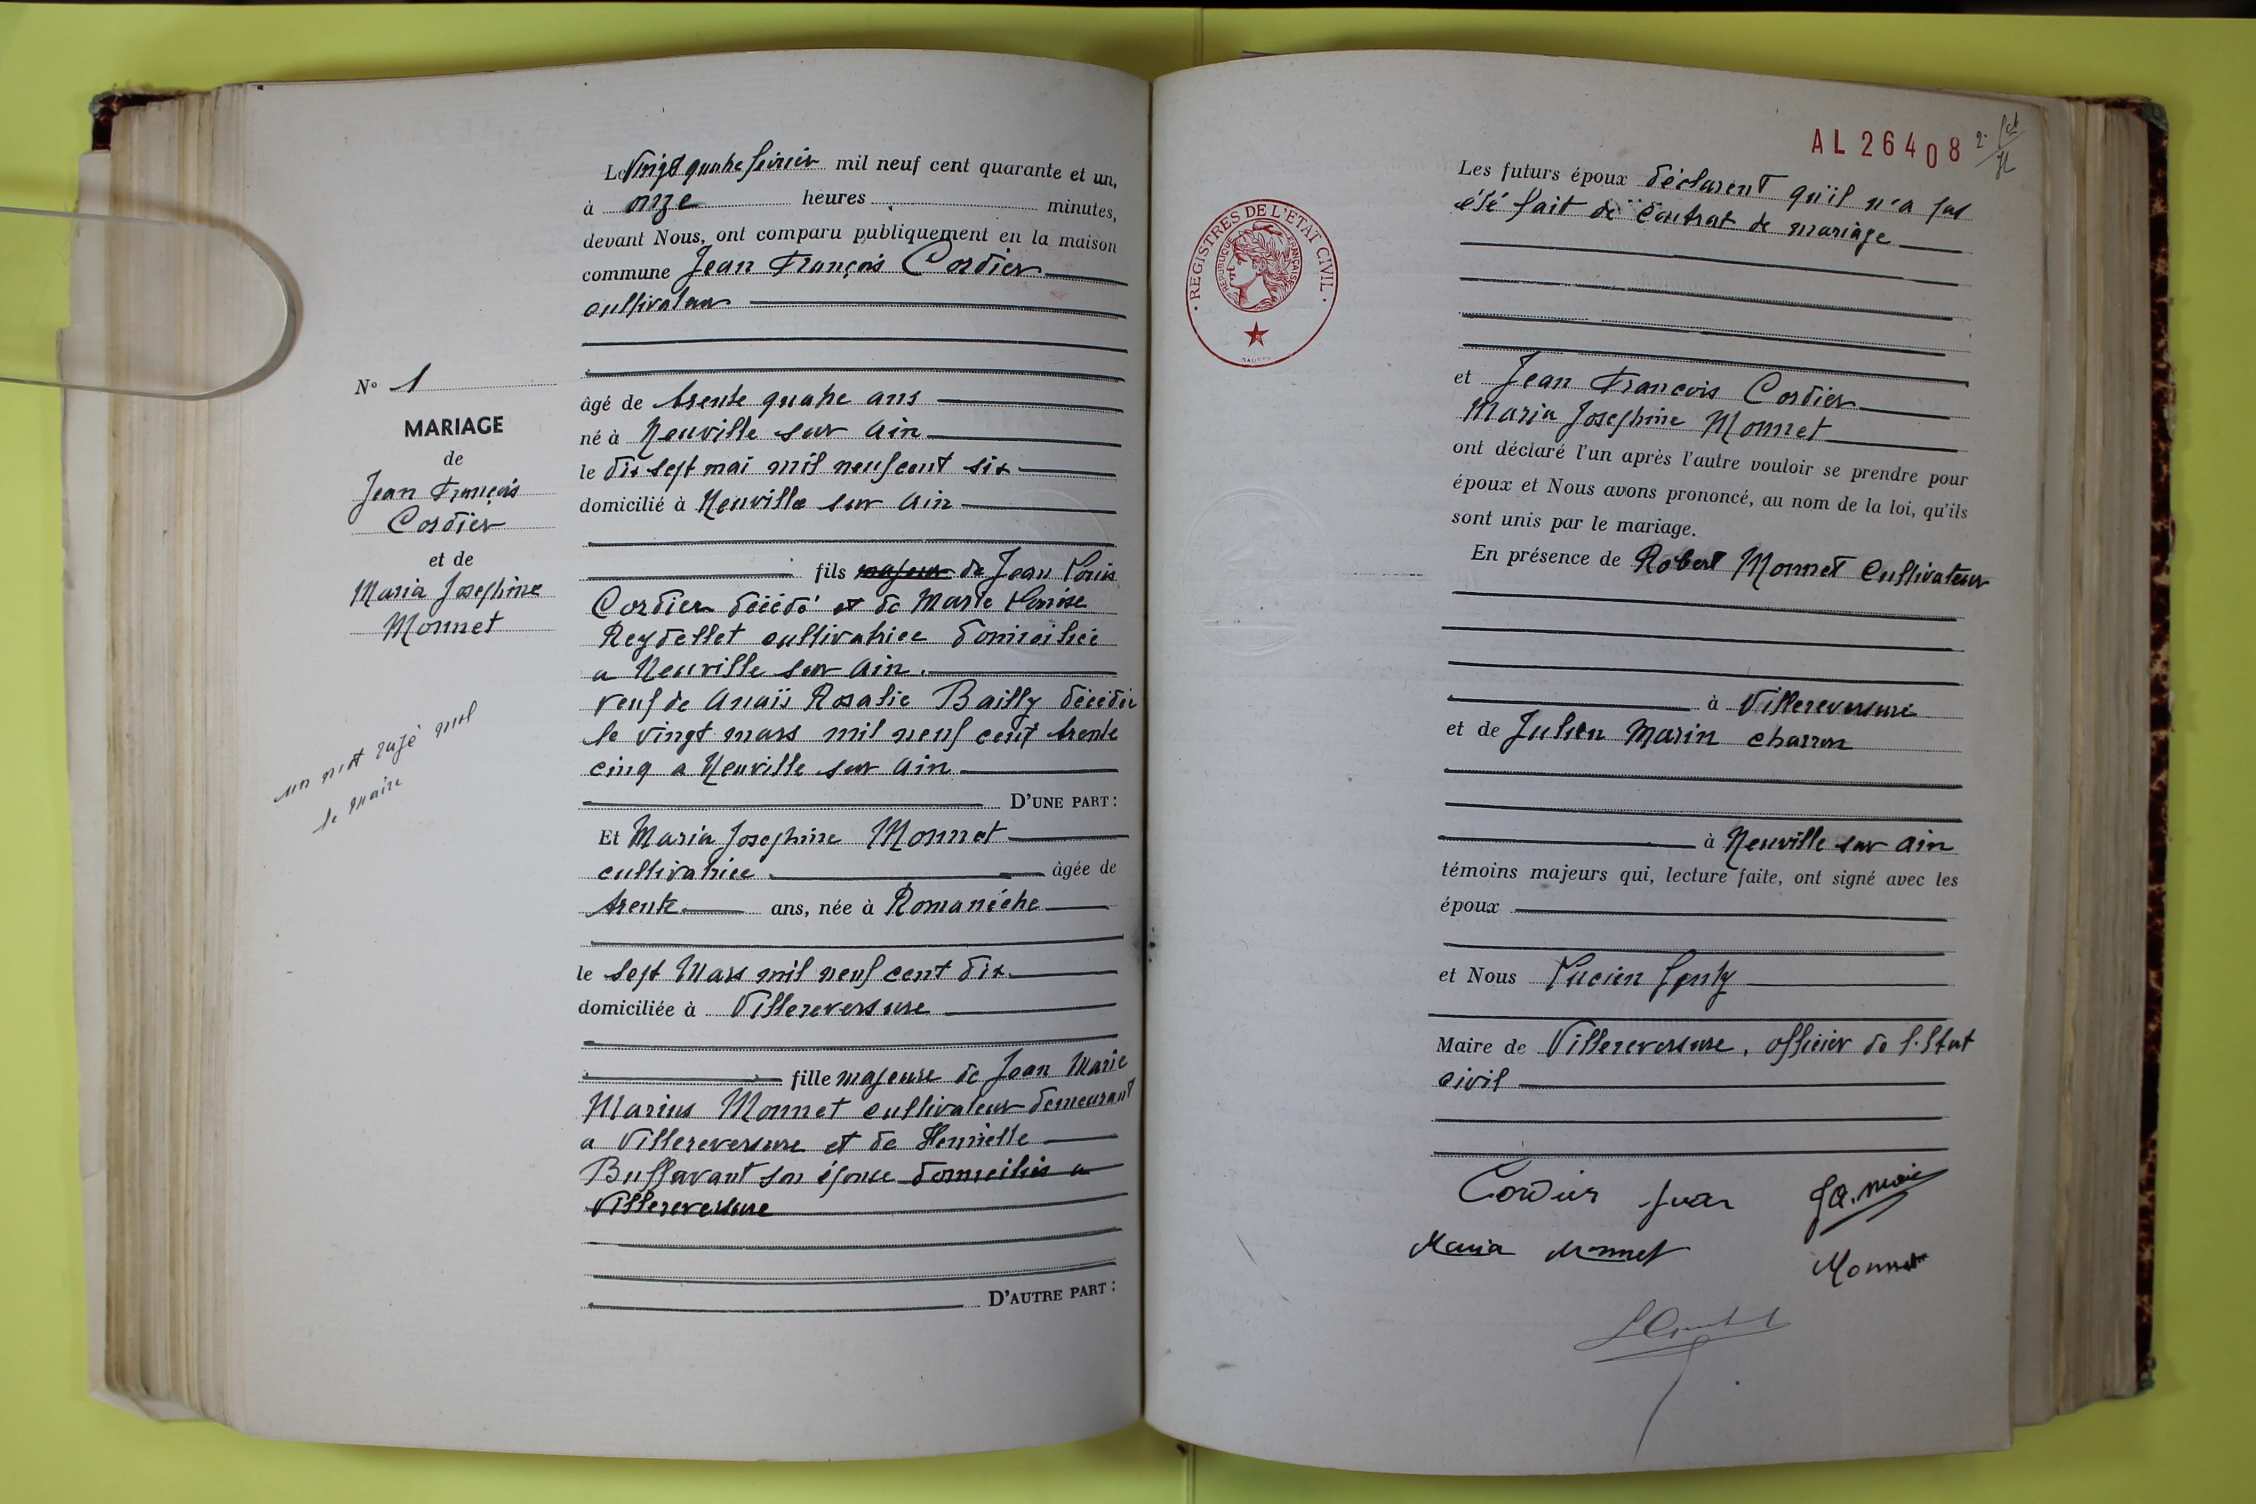 Le Vingt quatre février mil neuf cent quarante et un,
à onze heures minutes,
devant Nous, ont comparu publiquement en la maison
commune Jean François Cordier
cultivateur
âgé de trente quatre ans
né à Neuville sur Ain
le dix sept mai mil neuf cent six
domicilié à Neuville sur Ain
fils majeur de Jean Louis
Cordier décédé et de Marie Louise
Reydellet cultivatrice domiciliée
a Neuville sur Ain.
veuf de Anaïs Rosalie Bailly décédée
le vingt mars mil neuf cent trente
cinq a Neuville sur Ain
D'UNE PART:
Et Maria Josephine Monnet
cultivatrice âgée de
trente ans, née à Romanèche
le sept Mars mil neuf cent dix
domiciliée à Villereversure
fille majeure de Jean Marie
Marius Monnet cultivateur demeurant
a Villereversure et de Henriette
Buffavant son épouse domiciliés a
Villereversure
D'AUTRE PART:
N° 1
MARIAGE
de
Jean François
Cordier
et de
Maria Josephine
Monnet
un mot rayé nul
le maire
AL 26408
Les futurs époux déclarent qu'il n'a pas
été fait de contrat de mariage
REGISTRES DE L'ETAT CIVIL
REPUBLIQUE FRANÇAISE
et Jean Francois Cordier
Maria Josephine Monnet
ont déclaré l'un après l'autre vouloir se prendre pour
époux et Nous avons prononcé, au nom de la loi, qu'ils
sont unis par le mariage.
En présence de Robert Monnet Cultivateur
à Villereversure
et de Julien Marin charron
à Neuville sur Ain
témoins majeurs qui, lecture faite, ont signé avec les
époux
et Nous Lucien
Maire de Villereversure, officier de l'Etat
civil
Cordier Jean
Maria Monnet
Monnet